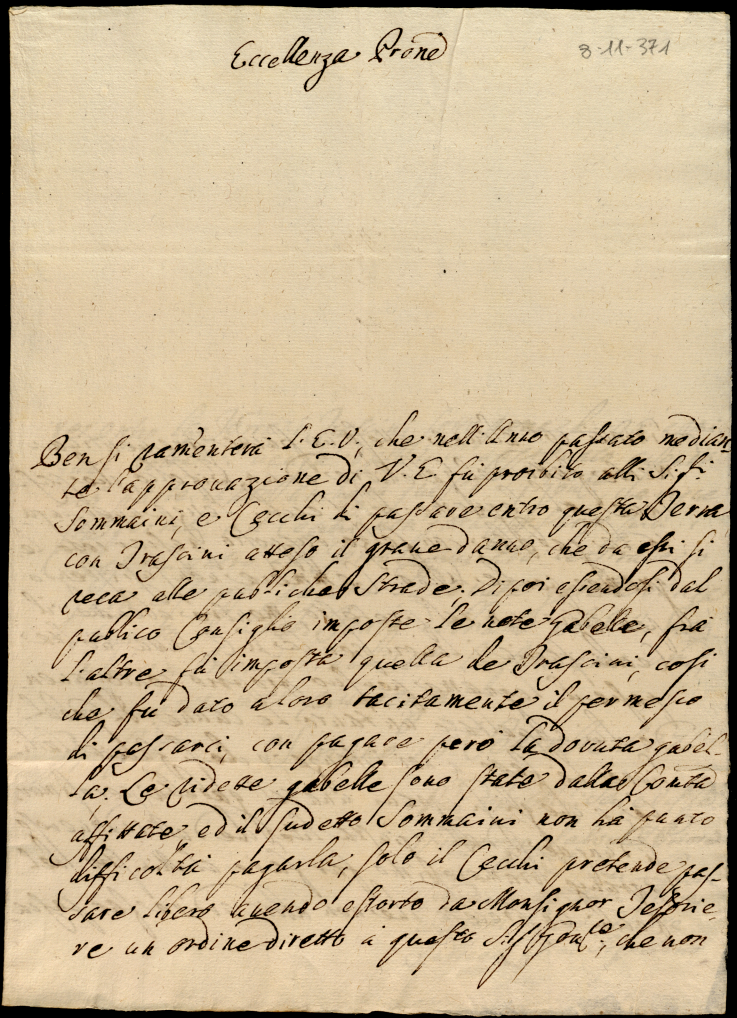 Eccellenza Prone
8-11-371
Ben si ramenterà l'E.V., che nell'Anno passato median-
te l'approvazione di V.E. fù proibito alli Sig.ri
Sommaini, e Cecchi di passare entro questa Terra
con Trascini atteso il grave danno, che da essi si
reca alle publiche strade. Di poi essendosi dal
publico Consiglio imposte le note gabelle, frà
l'altre fù imposta quella de Trascini, così
che fù dato a loro tacitamente il permesso
di passarci, con pagare però la dovuta gabel-
la. Le sudette gabelle sono state dalla Comtà
affittate ed il sudetto Sommaini non hà punto
difficoltà pagarla, solo il Cecchi pretende pas-
sare libero avendo estorto da Monsignor Tesorie-
re un ordine diretto à questo, che non